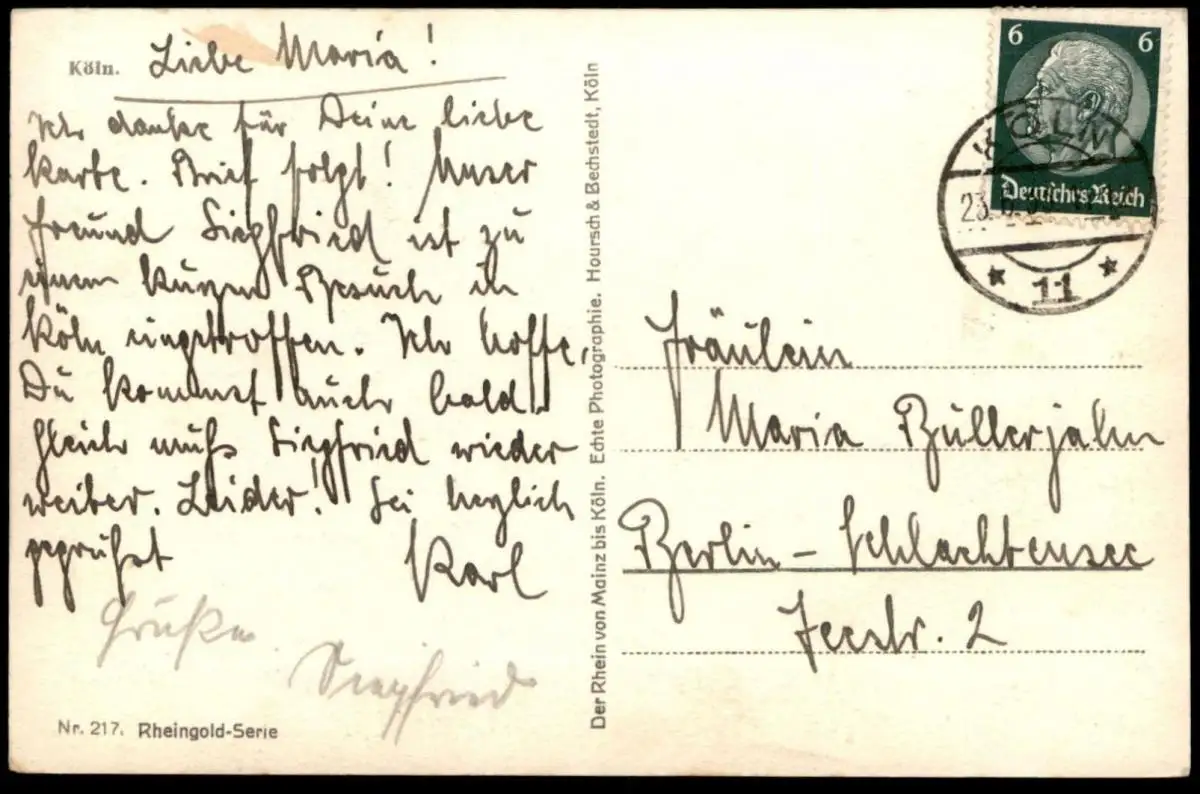 Köln.
Liebe Maria!
Ich danke für Deine liebe
Karte. Brief folgt! Unser
Freund Siegfried ist zu
einem kurzen Besuch in
Köln eingetroffen. Ich hoffe,
Du kommst auch bald.
Gleich muß Siegfried wieder
weiter. Leider! Sei herzlich
gegrüßt Karl
Grüße
Siegfried
Nr. 217. Rheingold-Serie
Der Rhein von Mainz bis Köln. Echte Photographie. Hoursch & Bechstedt, Köln
6 6
Deutsches Reich
KÖLN
23.
* 11 *
Fräulein
Maria Büllerjahn
Berlin - Schlachtensee
Seestr. 2